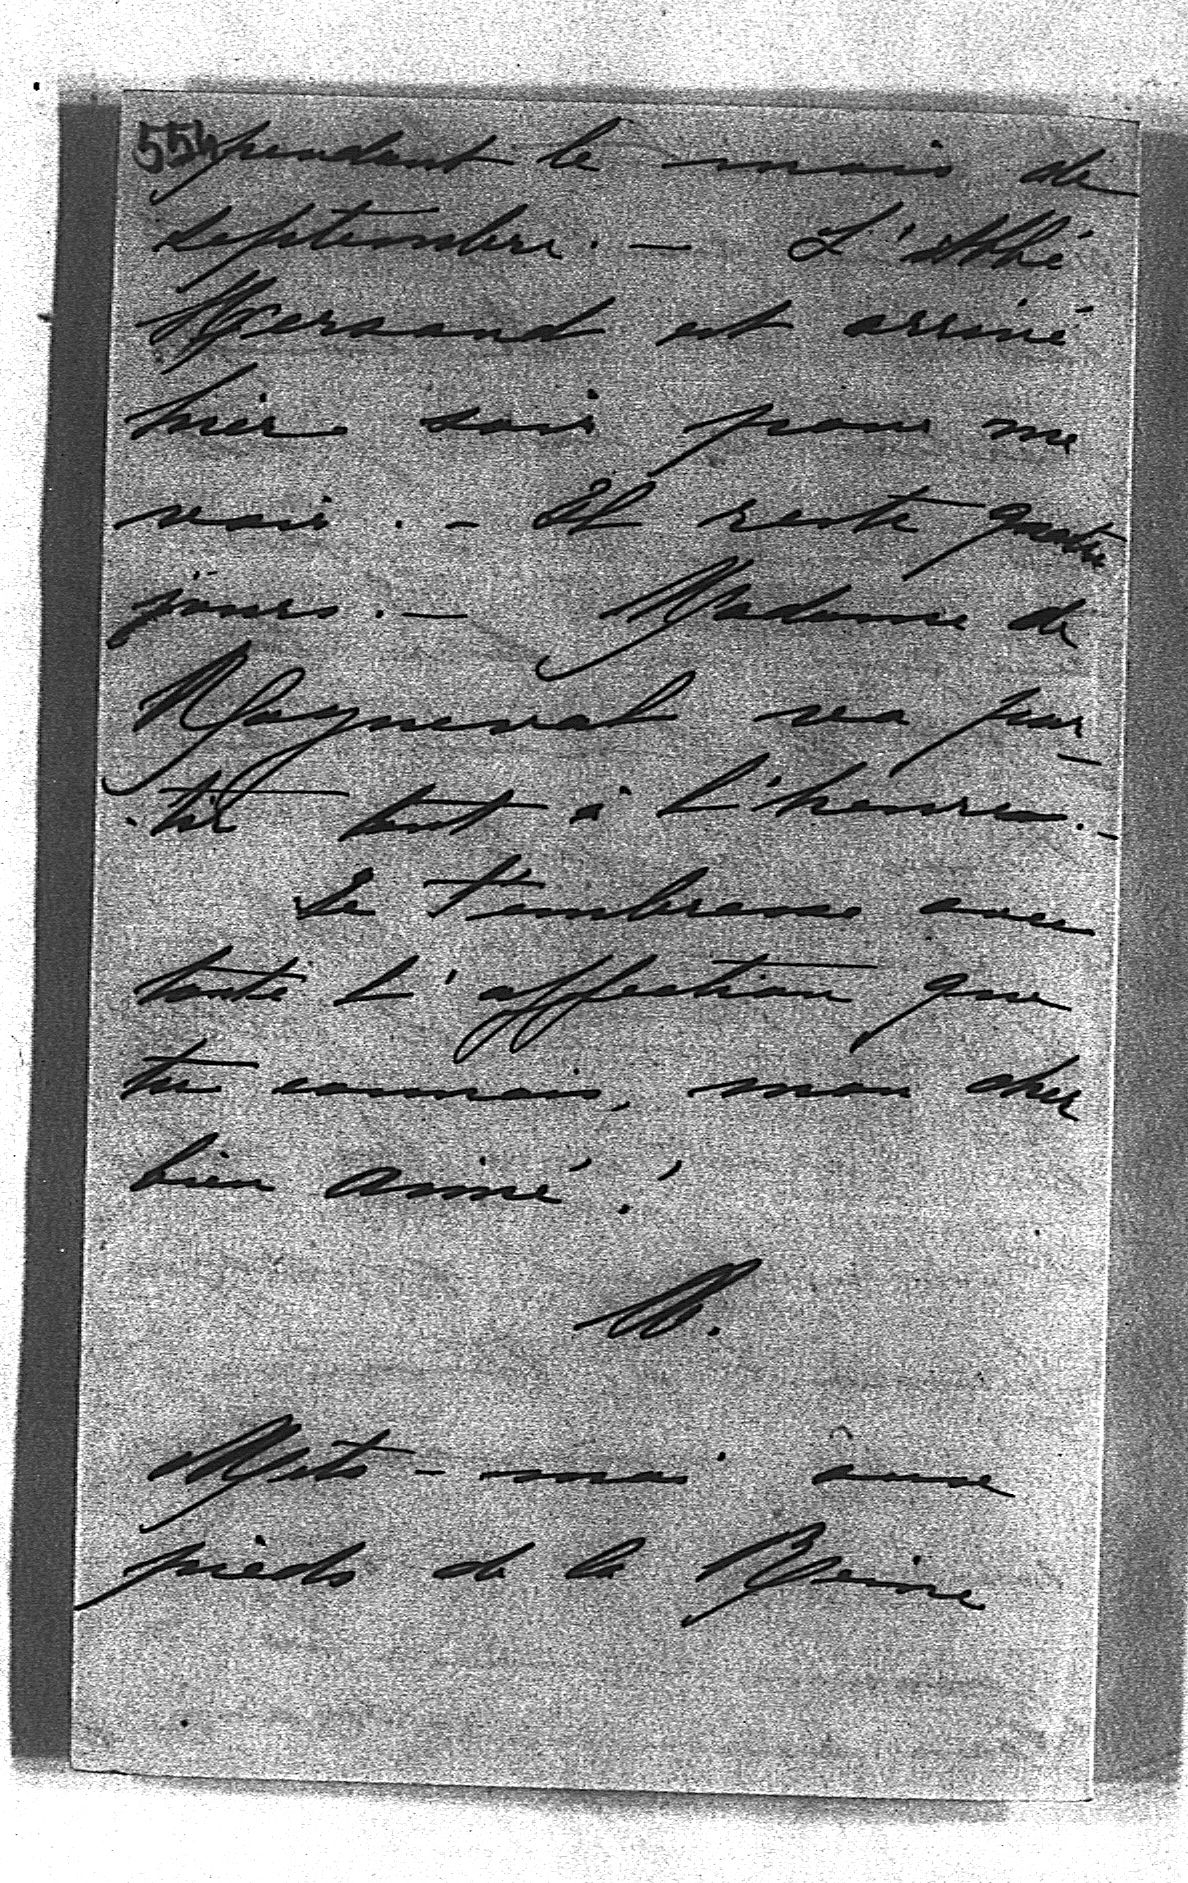 554
pendant le mois de
septembre. — L'Abbé
Mersand est arrivé
hier soir pour me
voir. — Il reste quatre
jours. — Madame de
va par-
-tir tout à l'heure. —
Je t'embrasse avec
toute l'affection que
tu connais, mon cher
bien aimé !
M.
Mets-moi aux
pieds de la Reine